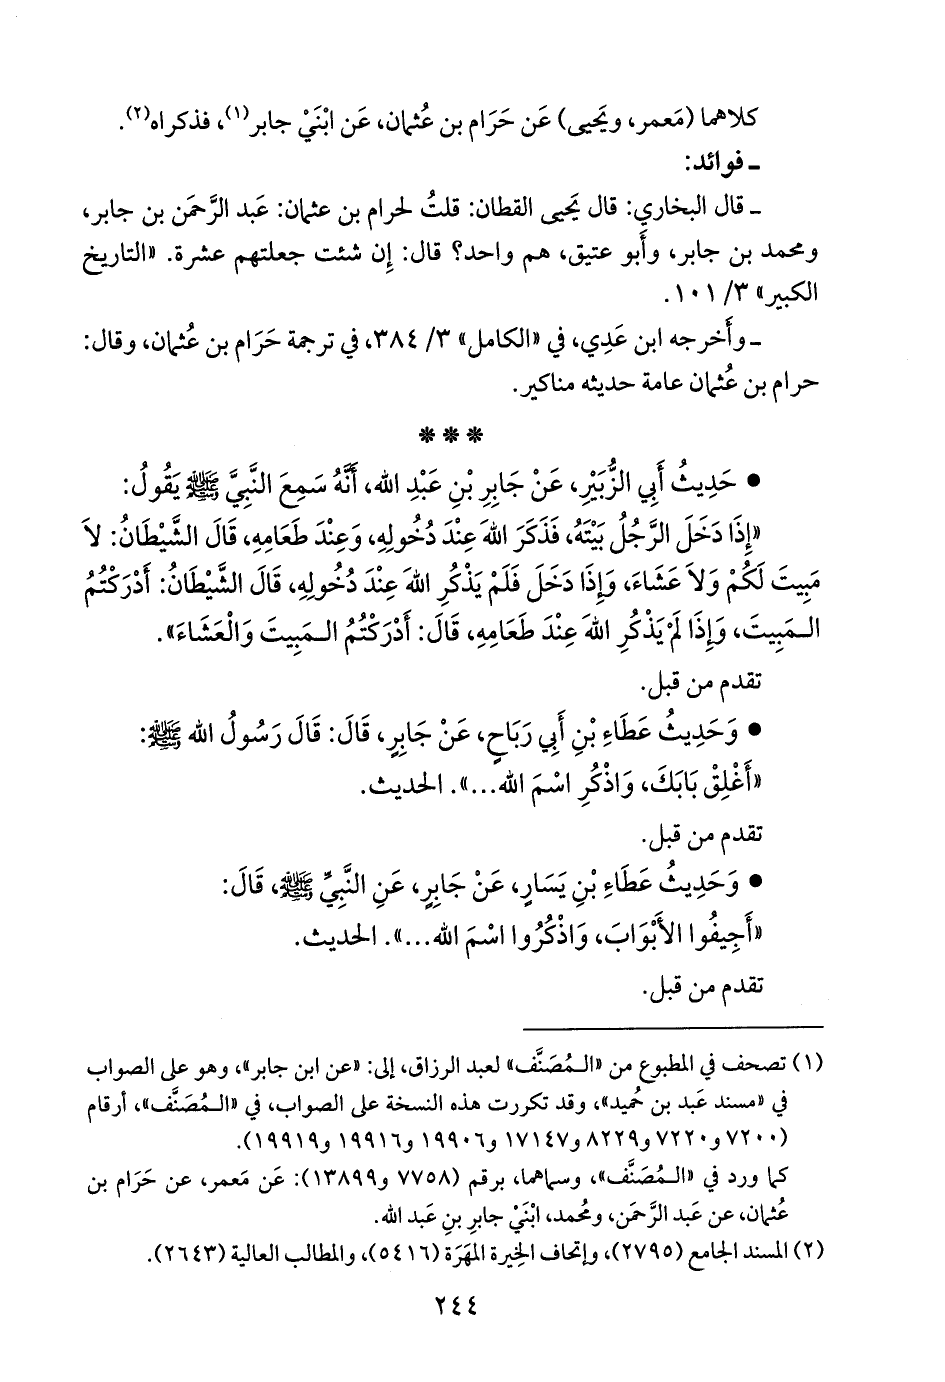 كلاهما (مَعمر، ويَحيى) عَن حَرَام بن عُثمان، عَن ابْنَيْ جابر(١)، فذكراه(٢).
ـ فوائد:
ـ قال البخاري: قال يَحيى القطان: قلتُ لحرام بن عثمان: عَبد الرَّحمَن بن جابر،
ومحمد بن جابر، وأَبو عتيق، هم واحد؟ قال: إِن شئت جعلتهم عشرة. «التاريخ
الكبير» ٣/ ١٠١.
ـ وأَخرجه ابن عَدِي، في «الكامل» ٣/ ٣٨٤، في ترجمة حَرَام بن عُثمان، وقال:
حرام بن عُثمان عامة حديثه مناكير.
* * *
• حَدِيثُ أَبِي الزُّبَيْرِ، عَنْ جَابِرِ بْنِ عَبْدِ الله، أَنَّهُ سَمِعَ النَّبِيَّ ﷺ يَقُولُ:
«إِذَا دَخَلَ الرَّجُلُ بَيْتَهُ، فَذَكَرَ اللهَ عِنْدَ دُخُولِهِ، وَعِنْدَ طَعَامِهِ، قَالَ الشَّيْطَانُ: لَا
مَبِيتَ لَكُمْ وَلاَ عَشَاءَ، وَإِذَا دَخَلَ فَلَمْ يَذْكُرِ اللهَ عِنْدَ دُخُولِهِ، قَالَ الشَّيْطَانُ: أَدْرَكْتُمُ
الـمَبِيتَ، وَإِذَا لَمْ يَذْكُرِ اللهَ عِنْدَ طَعَامِهِ، قَالَ: أَدْرَكْتُمُ الـمَبِيتَ وَالْعَشَاءَ».
تقدم من قبل.
• وَحَدِيثُ عَطَاءِ بْنِ أَبِي رَبَاحٍ، عَنْ جَابِرٍ، قَالَ: قَالَ رَسُولُ الله ﷺ:
«أَغْلِقْ بَابَكَ، وَاذْكُرِ اسْمَ الله...». الحديث.
تقدم من قبل.
• وَحَدِيثُ عَطَاءِ بْنِ يَسَارٍ، عَنْ جَابِرٍ، عَنِ النَّبِيِّ ﷺ، قَالَ:
«أَجِيفُوا الأَبْوَابَ، وَاذْكُرُوا اسْمَ الله...». الحديث.
تقدم من قبل.
(١) تصحف في المطبوع من «الـمُصَنَّف» لعبد الرزاق، إلى: «عن ابن جابر»، وهو على الصواب
في «مسند عَبد بن حُميد»، وقد تكررت هذه النسخة على الصواب، في «الـمُصَنَّف»، أرقام
(٧٢٠٠ و٧٢٢٠ و٨٢٢٩ و١٧١٤٧ و١٩٩٠٦ و١٩٩١٦ و١٩٩١٩).
كما ورد في «الـمُصَنَّف»، وسماهما، برقم (٧٧٥٨ و١٣٨٩٩): عَن مَعمر، عن حَرَام بن
عُثمان، عن عَبد الرَّحمَن، ومُحمد، ابْنَيْ جابرِ بنِ عَبد الله.
(٢) المسند الجامع (٢٧٩٥)، وإتحاف الخِيرة المهَرَة (٥٤١٦)، والمطالب العالية (٢٦٤٣).
٢٤٤